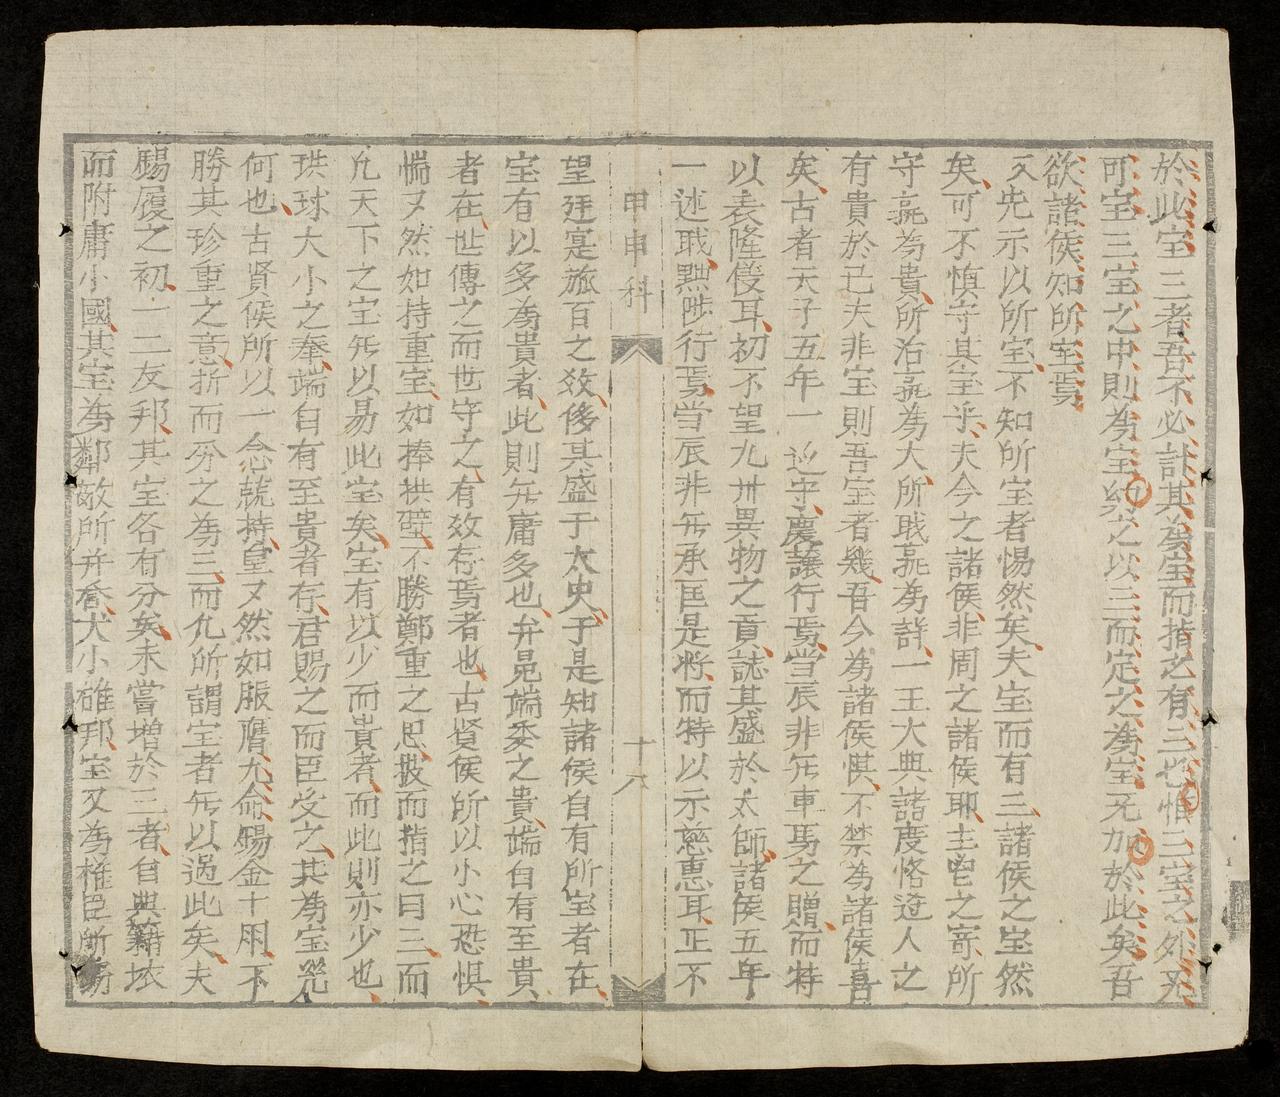 於此宝三者吾不必計其為宝而指之有三也惟三宝之外无
可宝三宝之中則為宝約之以三而定之為宝无加於此矣吾
欲諸侯知所宝焉
又先示以所宝不知所宝者惕然矣夫宝而有三諸侯之宝然
矣可不慎守其宝乎夫今之諸侯非周之諸侯耶主鬯之寄所
守孰為貴所治孰為大所戝孰為詳一王大典諸度恪迩人之
有貴於已夫非宝則吾宝者幾吾今為諸侯惧不禁為諸侯喜
矣古者天子五年一巡守慶讓行焉当辰非无車馬之贈而特
以表隆侵耳初不望九州異物之貢誌其盛於太師諸侯五年
一述戝黜陟行焉当辰非无承匡是將而特以示慈惠耳正不
甲申科
十八
望廷寔旅百之效侈其盛于太史于是知諸侯自有所宝者在
宝有以多為貴者此則无庸多也弁冕端委之貴端自有至貴
者在世傳之而世守之有效存焉者也古贤侯所以小心恐惧
惴又然如持重宝如捧拱璧不勝鄭重之思披而指之曰三而
凢天下之宝无以易此宝矣宝有以少而貴者而此則亦少也
珙球大小之奉端自有至貴者存君賜之而臣受之其為宝㒵
何也古贤侯所以一念兢持皇又然如服膺九命錫金十朋不
勝其珍重之意折而分之為三而凢所謂宝者无以過此矣夫
賜履之初一二友邦其宝各有分矣未嘗增於三者自典籍㳒
而附庸小國其宝為鄰敵所并眘大小雄邦宝又為権臣所窃